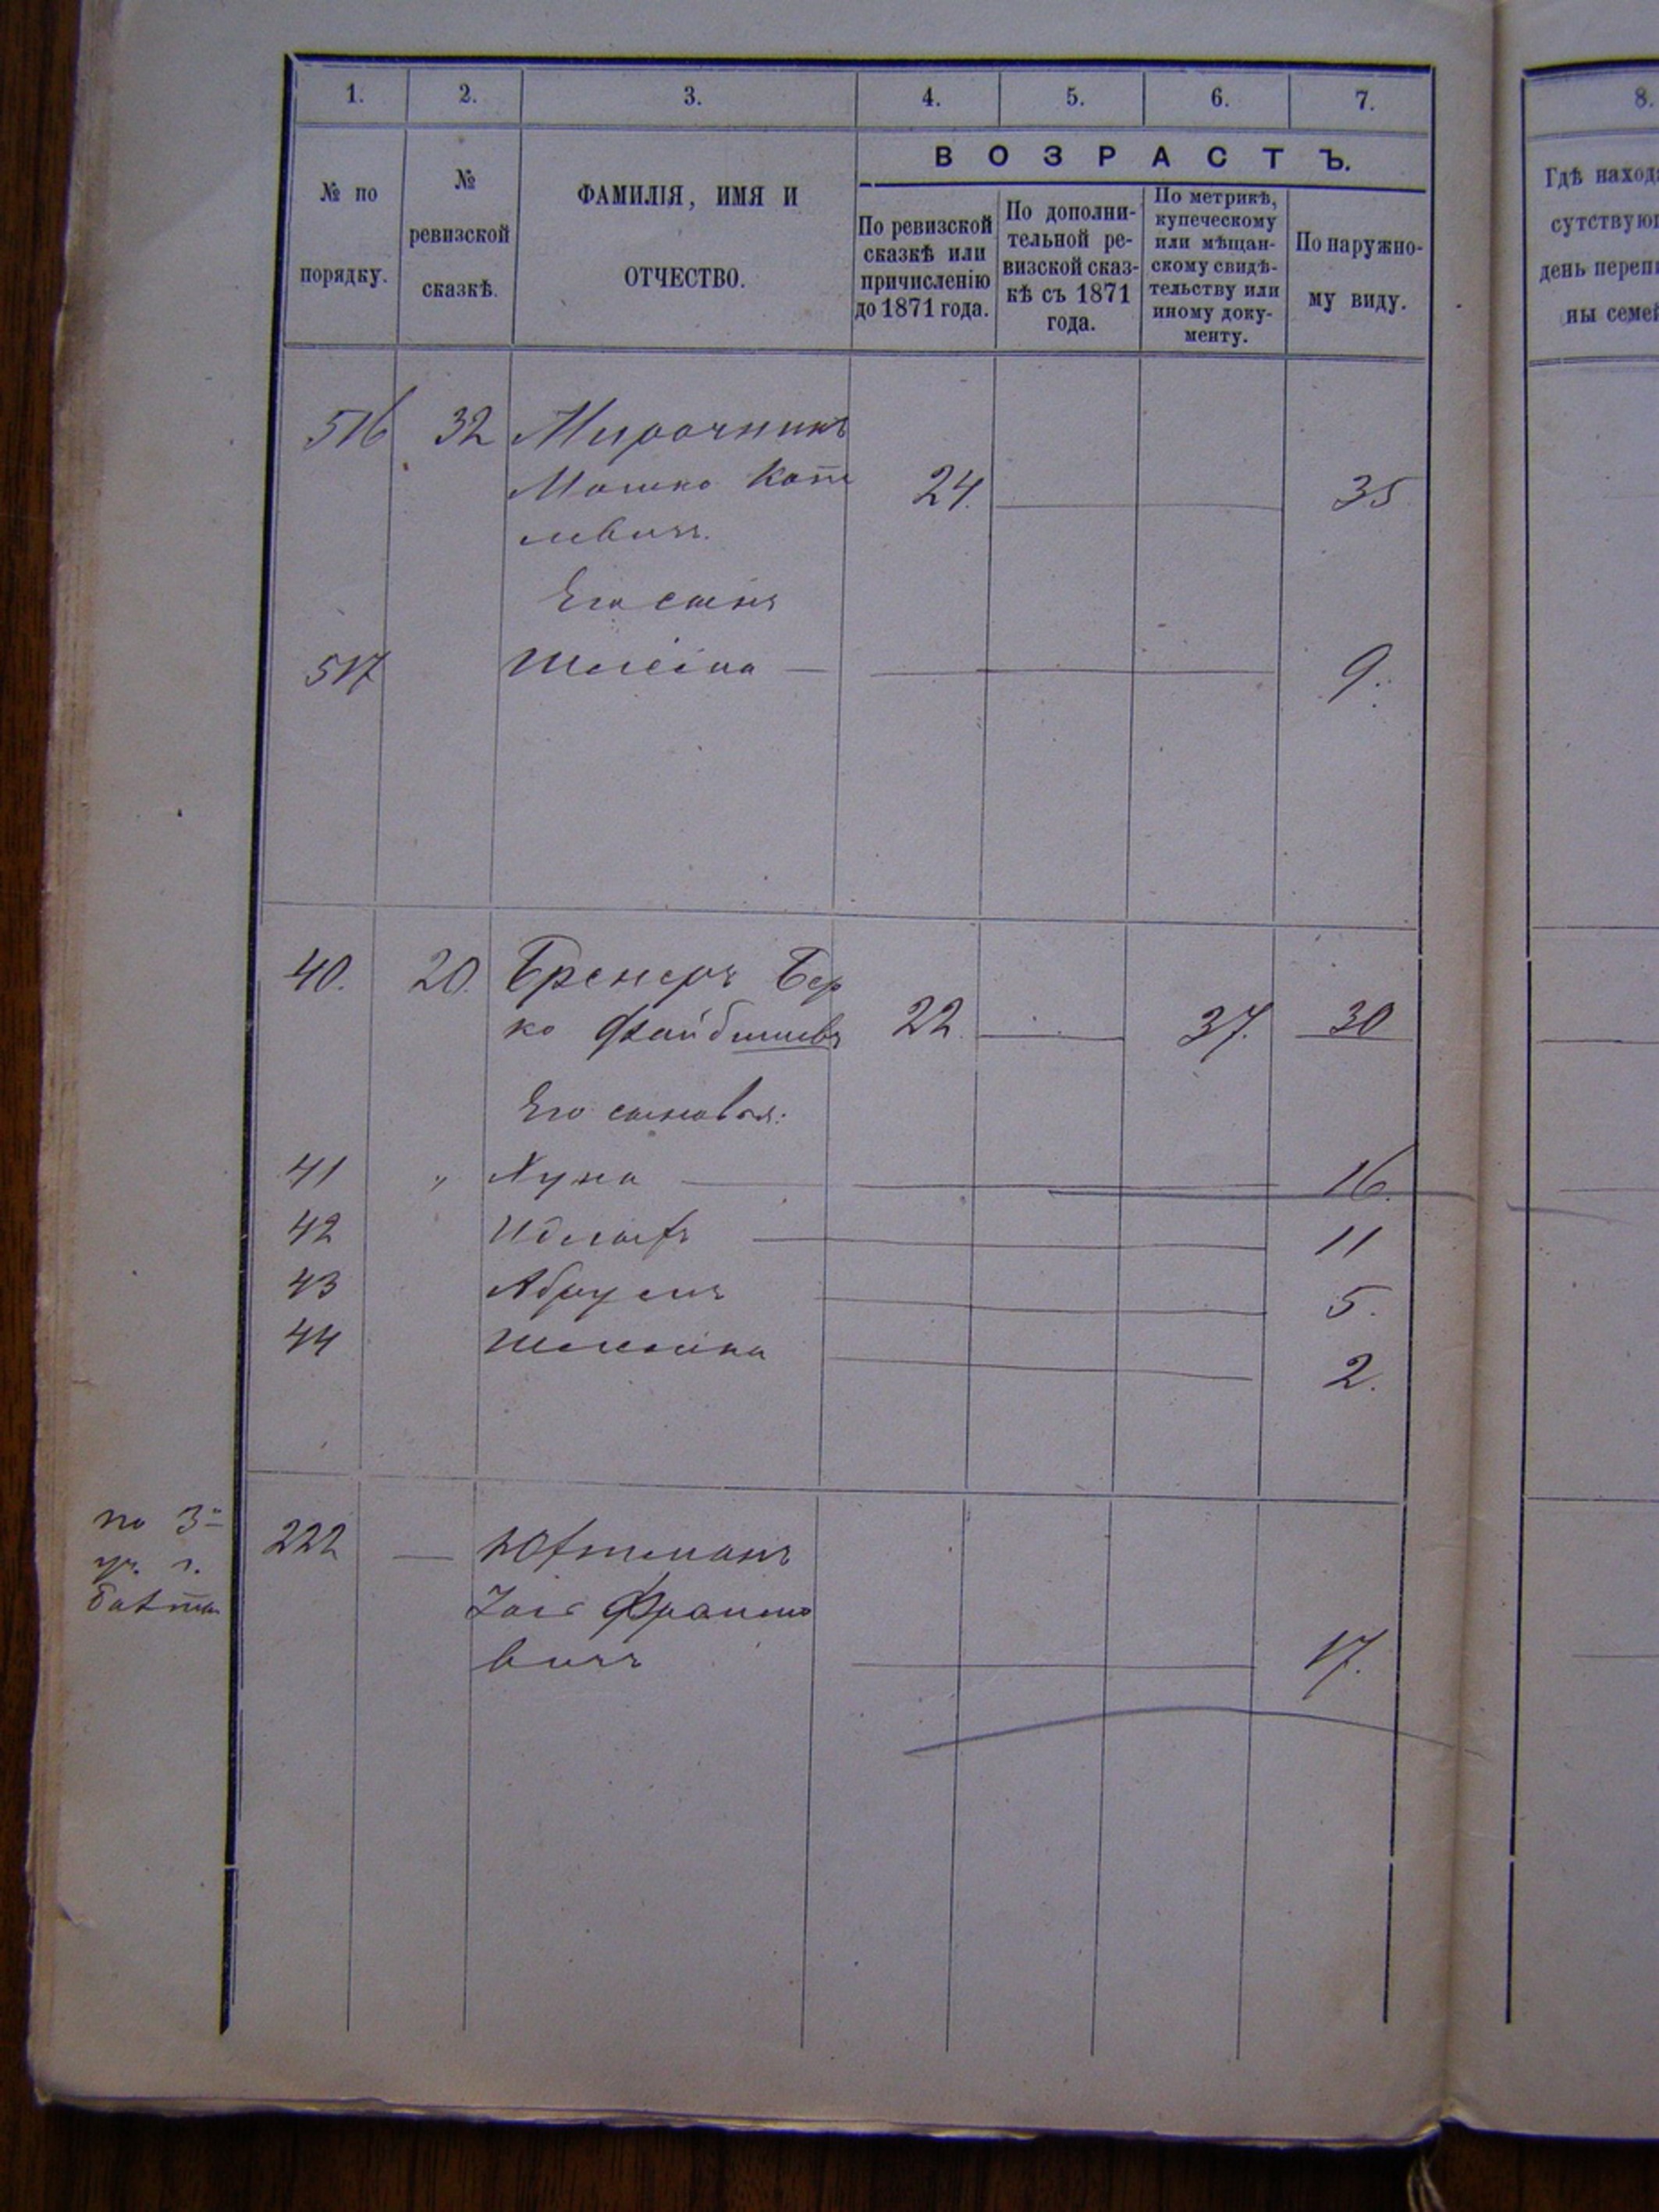 1. 2. 3. 4. 5. 6. 7. 8.
ВОЗРАСТЪ.
№ по порядку.
№ ревизской сказкѣ.
ФАМИЛІЯ, ИМЯ И ОТЧЕСТВО.
По ревизской сказкѣ или причисленію до 1871 года.
По дополнительной ревизской сказкѣ съ 1871 года.
По метрикѣ, купеческому или мѣщанскому свидѣтельству или иному документу.
По наружному виду.
Гдѣ наход
сутствую
день переп
ны семей
516 32 Мирочникъ
Мошко 24. 35
Его сынъ
517 9.
40. 20. Бренеръ Бер
ко Файбишевъ 22. 37. 30
Его сыновья:
41 " Хуна 16.
42 11
43 5.
44 2.
по 3
222
17.
вичъ